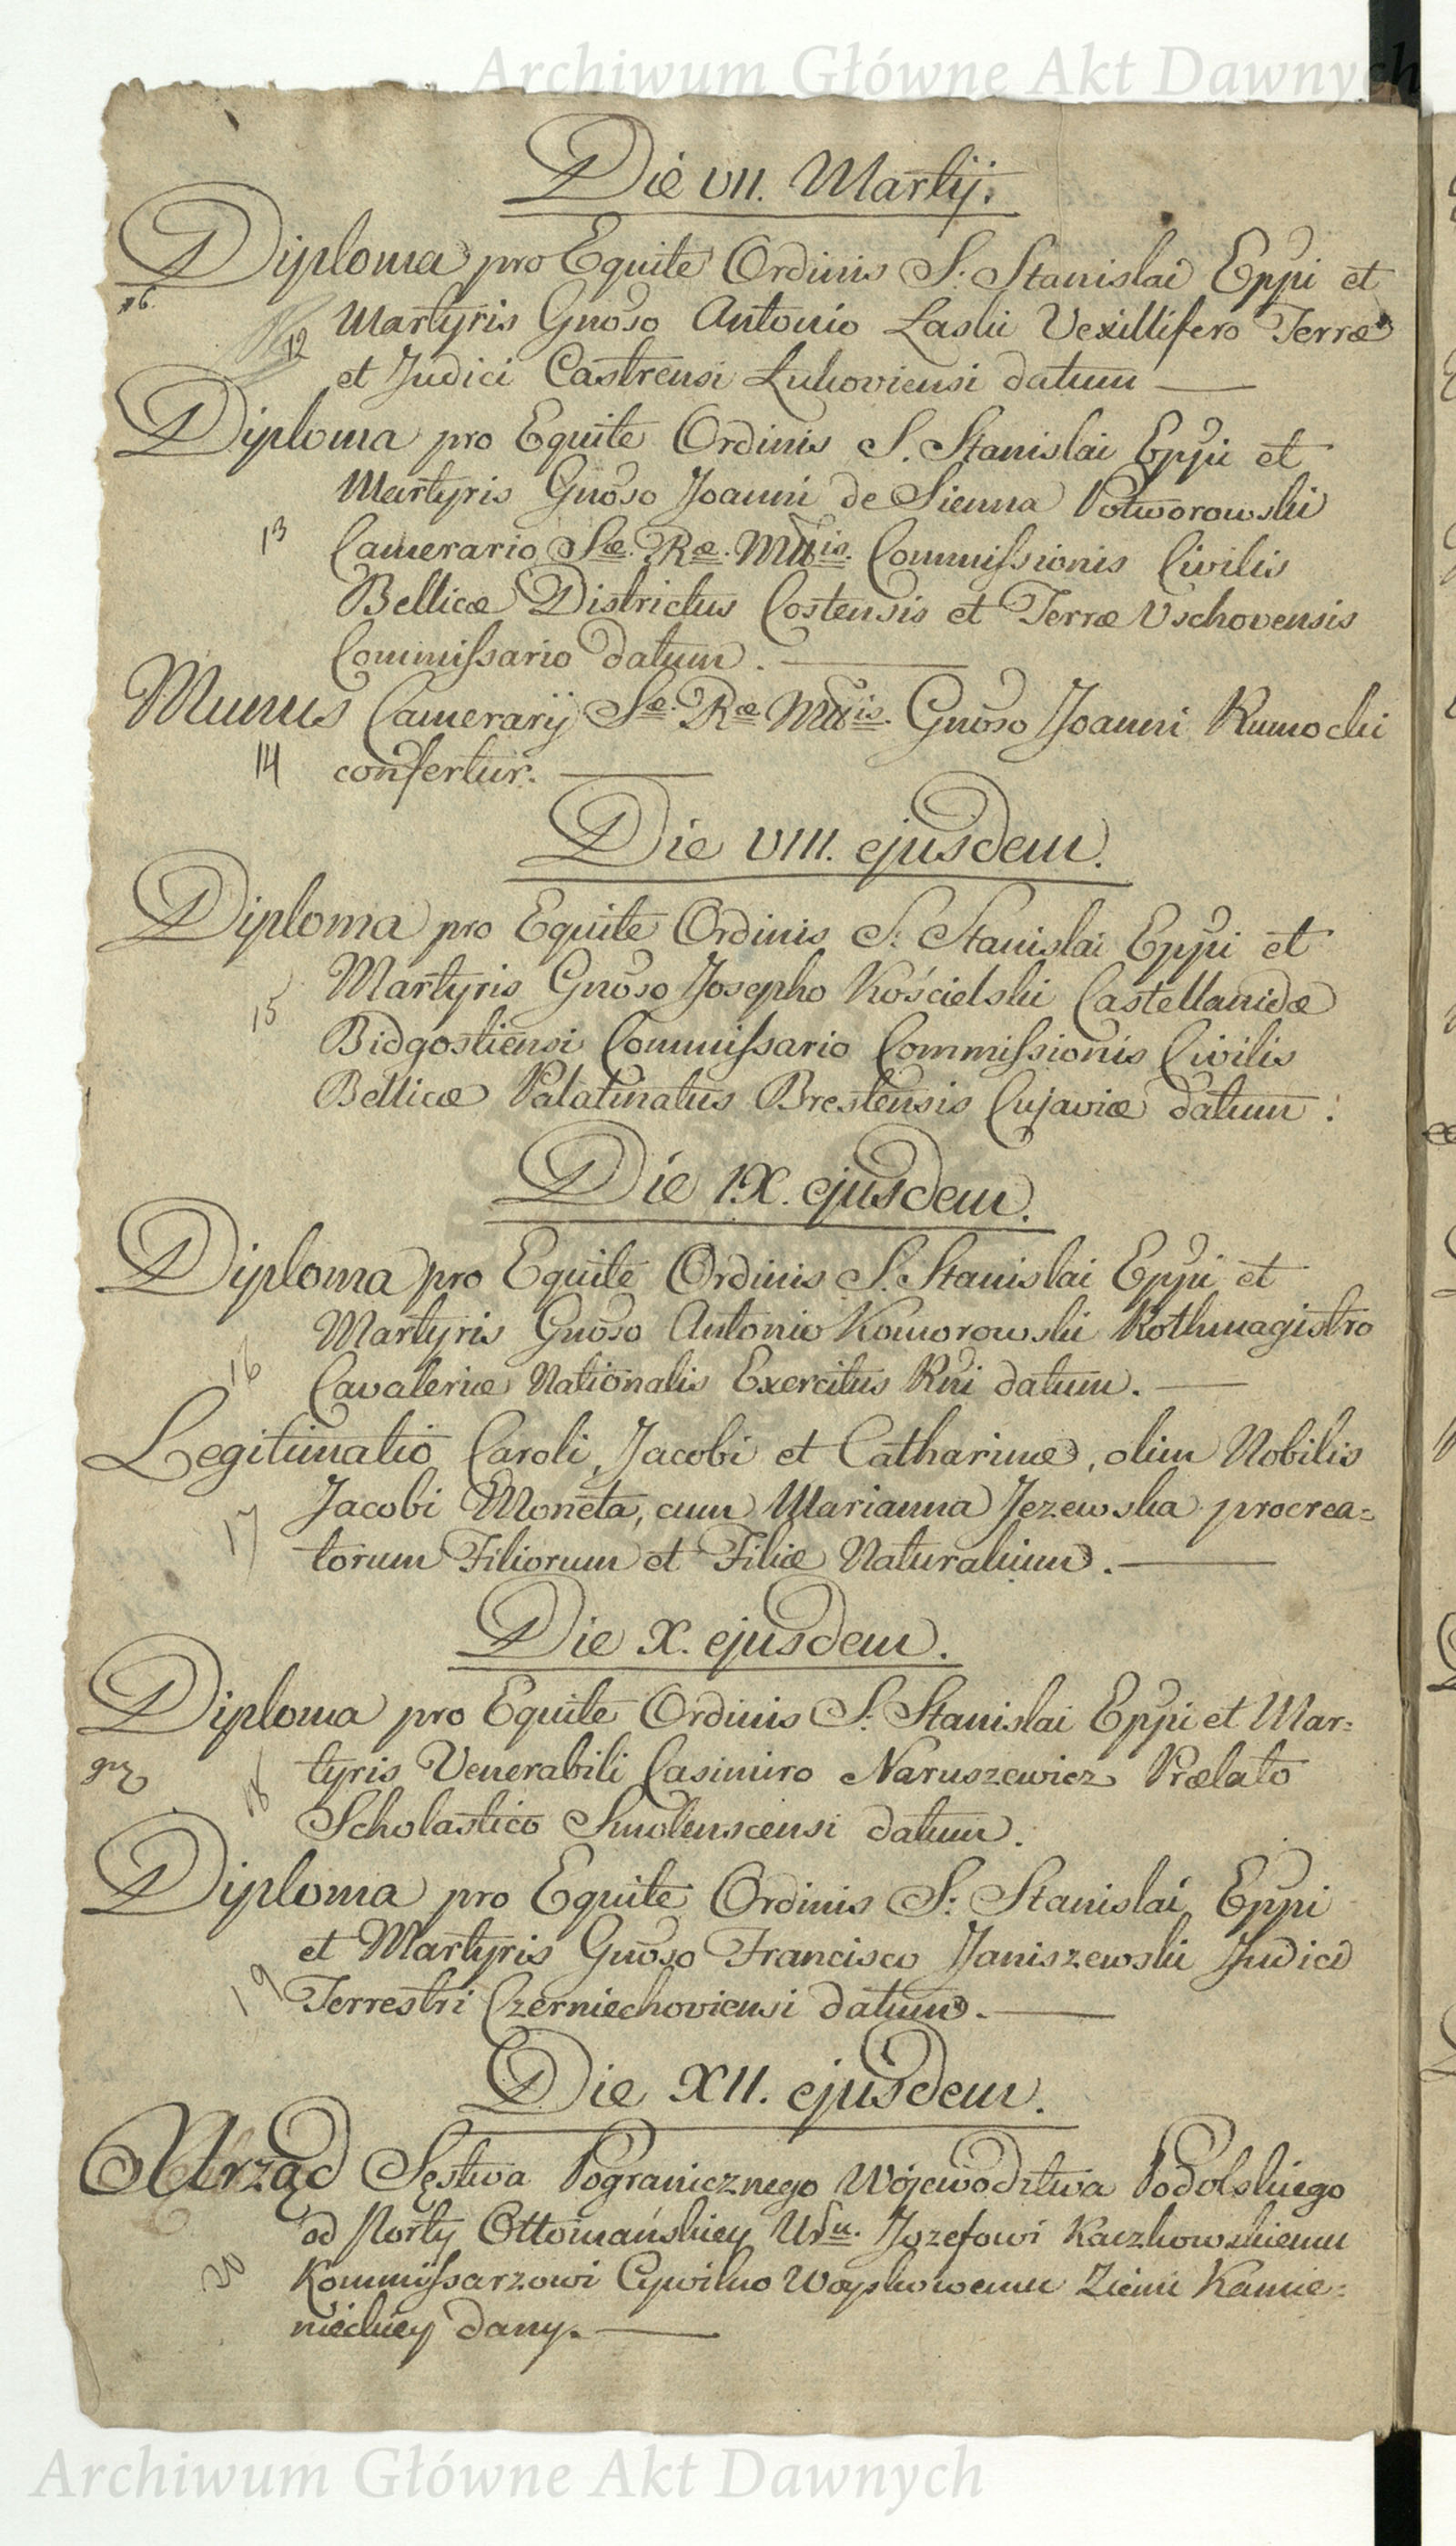 Archiwum Główne Akt Dawnych
Die VII. Martij.
Diploma pro Equite Ordinis S. Stanislai Eppi et
16.
Martyris Gnoso Antonio Laski Vexillifero Terræ
12
et Judici Castrensi Lukoviensi datum —
Diploma pro Equite Ordinis S. Stanislai Eppi et
Martyris Gnoso Joanni de Sienna Potworowski
13 Camerario Sæ. Ræ. Mttis. Commissionis Civilis
Bellicæ Districtus Costensis et Terræ Vschovensis
Commissario datum. —
Munus Camerarij Sæ. Ræ Mttis. Gnoso Joanni Rumocki
14 confertur. —
Die VIII. ejusdem.
Diploma pro Equite Ordinis S. Stanislai Eppi et
Martyris Gnoso Josepho Kościelski Castellanidæ
15 Bidgostiensi Commissario Commissionis Civilis
Bellicæ Palatinatus Brestensis Cujaviæ datum:
Die IX. ejusdem.
Diploma pro Equite Ordinis S. Stanislai Eppi et
Martyris Gnoso Antonio Komorowski Rothmagistro
16 Cavaleriæ Nationalis Exercitus Rni datum. —
Legitimatio Caroli, Jacobi et Catharinæ, olim Nobilis
Jacobi Moneta, cum Marianna Jezewska procrea=
17 torum Filiorum et Filiæ Naturalium. —
Die X. ejusdem.
Diploma pro Equite Ordinis S. Stanislai Eppi et Mar=
18 tyris Venerabili Casimiro Naruszewicz Prælato
Scholastico Smolenscensi datum.
Diploma pro Equite Ordinis S. Stanislai Eppi
et Martyris Gnoso Francisco Janiszewski Judici
19 Terrestri Czerniechoviensi datum. —
Die XII. ejusdem.
Urząd Sęstwa Pogranicznego Wojewodztwa Podolskiego
od Porty Ottomańskiey Urdu. Jozefowi Kaczkowskiemu
20 Kommissarzowi Cywilno Woyskowemu Ziemi Kamie=
nieckiey dany. —
Archiwum Główne Akt Dawnych